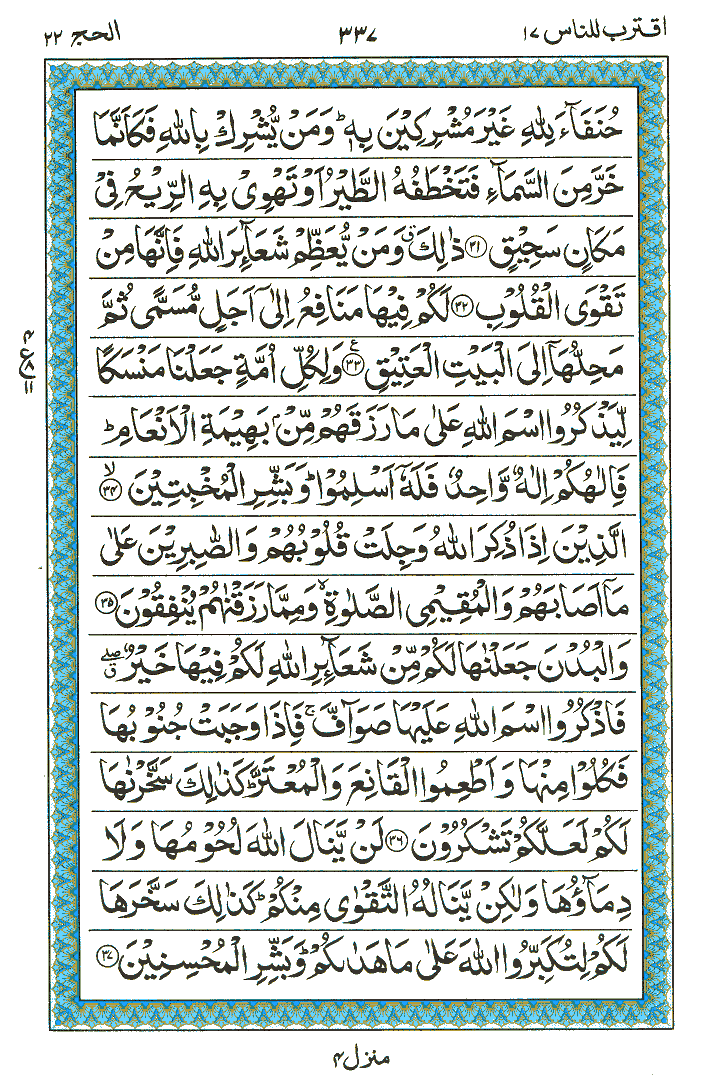 اقترب للناس ١٧ ٣٣٧ الحج ٢٢
حُنَفَآءَ لِلّٰهِ غَيْرَ مُشْرِكِيْنَ بِهٖ ؕ وَمَنْ يُّشْرِكْ بِاللّٰهِ فَكَاَنَّمَا
خَرَّ مِنَ السَّمَآءِ فَتَخْطَفُهُ الطَّيْرُ اَوْ تَهْوِىْ بِهِ الرِّيْحُ فِىْ
مَكَانٍ سَحِيْقٍ ﴿٣١﴾ ذٰلِكَ ۗ وَمَنْ يُّعَظِّمْ شَعَآئِرَ اللّٰهِ فَاِنَّهَا مِنْ
تَقْوَى الْقُلُوْبِ ﴿٣٢﴾ لَكُمْ فِيْهَا مَنَافِعُ اِلٰٓى اَجَلٍ مُّسَمًّى ثُمَّ
مَحِلُّهَاۤ اِلَى الْبَيْتِ الْعَتِيْقِ ﴿٣٣﴾ ع وَلِكُلِّ اُمَّةٍ جَعَلْنَا مَنْسَكًا
لِّيَذْكُرُوا اسْمَ اللّٰهِ عَلٰى مَا رَزَقَهُمْ مِّنْۢ بَهِيْمَةِ الْاَنْعَامِ ؕ
فَاِلٰهُكُمْ اِلٰهٌ وَّاحِدٌ فَلَهٗۤ اَسْلِمُوْا ؕ وَبَشِّرِ الْمُخْبِتِيْنَ ۙ ﴿٣٤﴾
الَّذِيْنَ اِذَا ذُكِرَ اللّٰهُ وَجِلَتْ قُلُوْبُهُمْ وَالصّٰبِرِيْنَ عَلٰى
مَاۤ اَصَابَهُمْ وَالْمُقِيْمِى الصَّلٰوةِ ۙ وَمِمَّا رَزَقْنٰهُمْ يُنْفِقُوْنَ ﴿٣٥﴾
وَالْبُدْنَ جَعَلْنٰهَا لَكُمْ مِّنْ شَعَآئِرِ اللّٰهِ لَكُمْ فِيْهَا خَيْرٌ ۖ ق
فَاذْكُرُوا اسْمَ اللّٰهِ عَلَيْهَا صَوَآفَّ ۚ فَاِذَا وَجَبَتْ جُنُوْبُهَا
فَكُلُوْا مِنْهَا وَاَطْعِمُوا الْقَانِعَ وَالْمُعْتَرَّ ؕ كَذٰلِكَ سَخَّرْنٰهَا
لَكُمْ لَعَلَّكُمْ تَشْكُرُوْنَ ﴿٣٦﴾ لَنْ يَّنَالَ اللّٰهَ لُحُوْمُهَا وَلَا
دِمَآؤُهَا وَلٰكِنْ يَّنَالُهُ التَّقْوٰى مِنْكُمْ ؕ كَذٰلِكَ سَخَّرَهَا
لَكُمْ لِتُكَبِّرُوا اللّٰهَ عَلٰى مَا هَدٰىكُمْ ؕ وَبَشِّرِ الْمُحْسِنِيْنَ ﴿٣٧﴾
٤
ع ٨
١١
منزل ٤